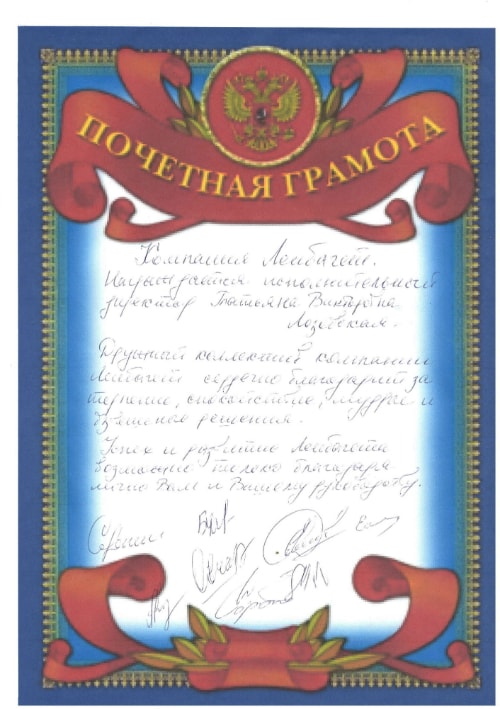 ПОЧЕТНАЯ ГРАМОТА
Компания Лейбагет.
Награждается исполнительный
директор Татьяна Викторовна
Лозовская.
Дружный коллектив компании
Лейбагет сердечно благодарит за
терпение, спокойствие, мудрые и
взвешенные решения.
Успех и развитие Лейбагета
возможно только благодаря
лично Вам и Вашему руководству.